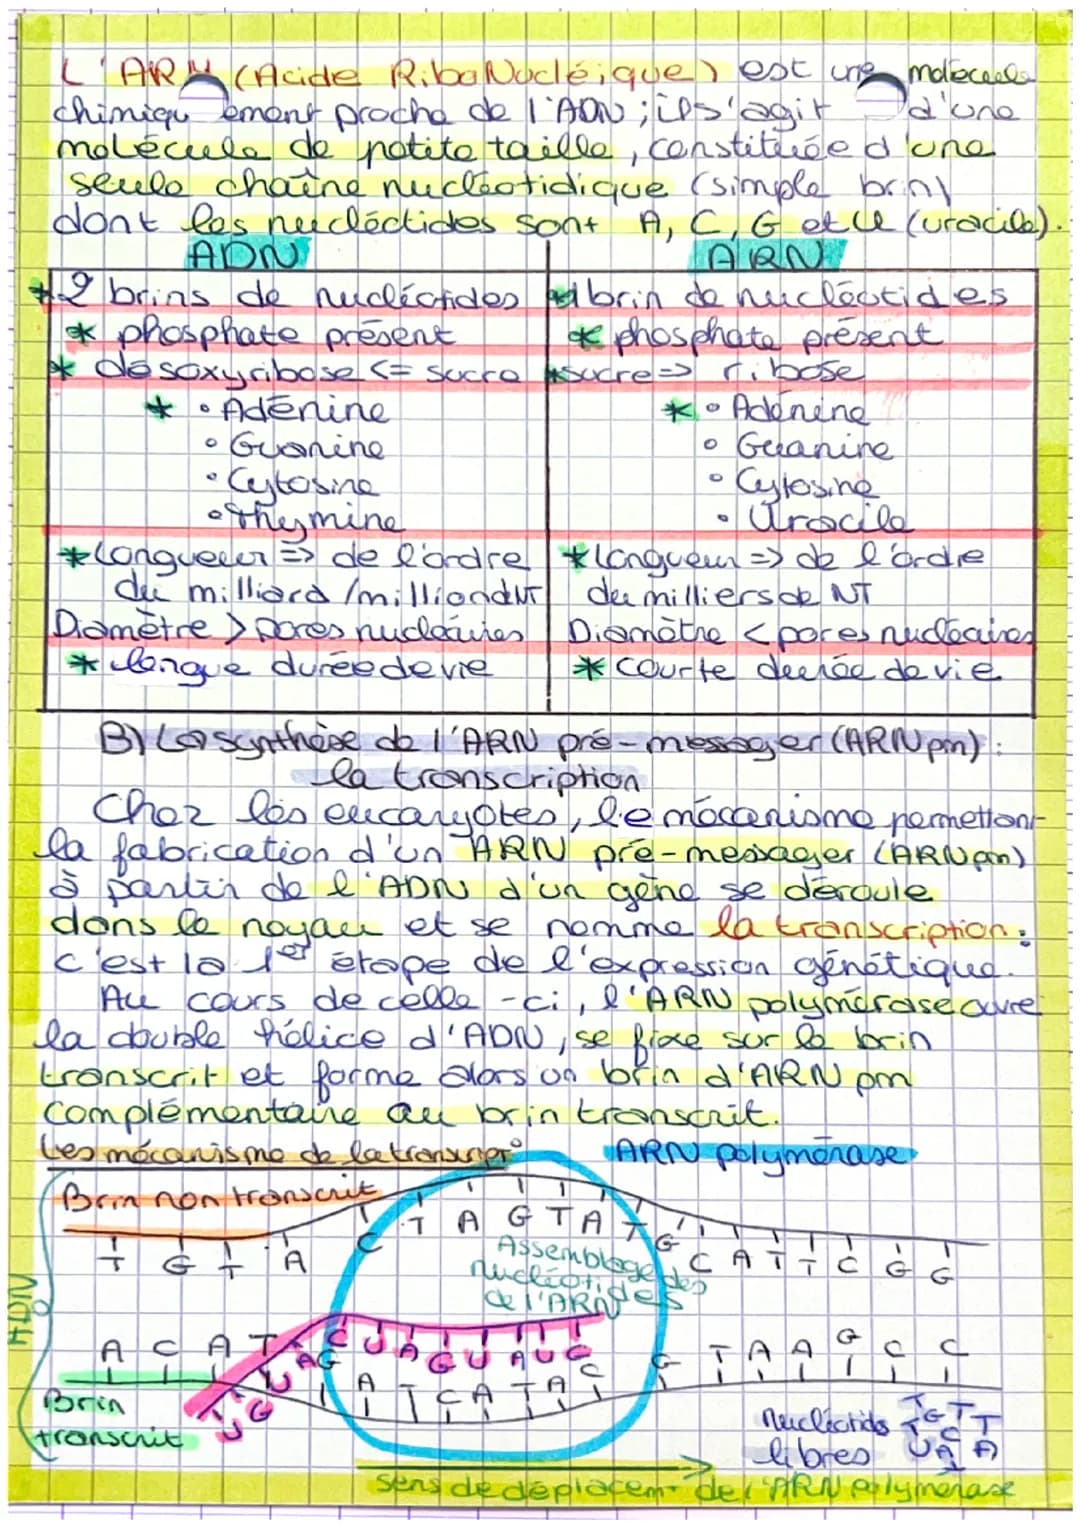 L'ARN (Acide RiboNucléique) est une molécule
chimiquement proche de l'ADN ; il s'agit d'une
molécule de petite taille, constituée d'une
seule chaîne nucléotidique (simple brin)
dont les nucléotides sont A, C, G et U (uracile).
ADN
ARN
* 2 brins de nucléotides
* 1 brin de nucléotides
* phosphate présent
* phosphate présent
* désoxyribose <= sucre
* sucre => ribose
* • Adénine
* • Adénine
• Guanine
• Guanine
• Cytosine
• Cytosine
• Thymine
• Uracile
* Longueur => de l'ordre
* Longueur => de l'ordre
du milliard / million de NT
du milliers de NT
Diamètre > pores nucléaires
Diamètre < pores nucléaires
* longue durée de vie
* courte durée de vie
B) La synthèse de l'ARN pré-messager (ARN pm) :
la transcription
Chez les eucaryotes, le mécanisme permettant
la fabrication d'un ARN pré-messager (ARN pm)
à partir de l'ADN d'un gène se déroule
dans le noyau et se nomme la transcription :
c'est la 1er étape de l'expression génétique.
Au cours de celle-ci, l'ARN polymérase ouvre
la double hélice d'ADN, se fixe sur le brin
transcrit et forme alors un brin d'ARN pm
complémentaire au brin transcrit.
Les mécanisme de la transcript°
ARN polymérase
Brin non transcrit
T G T A C T A G T A T G C A T T C G G
Assemblage des
nucléotides
de l'ARN
ADN
A C A T G A T C A T A C G T A A G C C
U G U A C U A G U A U G
Brin
transcrit
nucléotides
libres
T G T T
T C T
U A A
sens de déplacemt de l'ARN polymérase